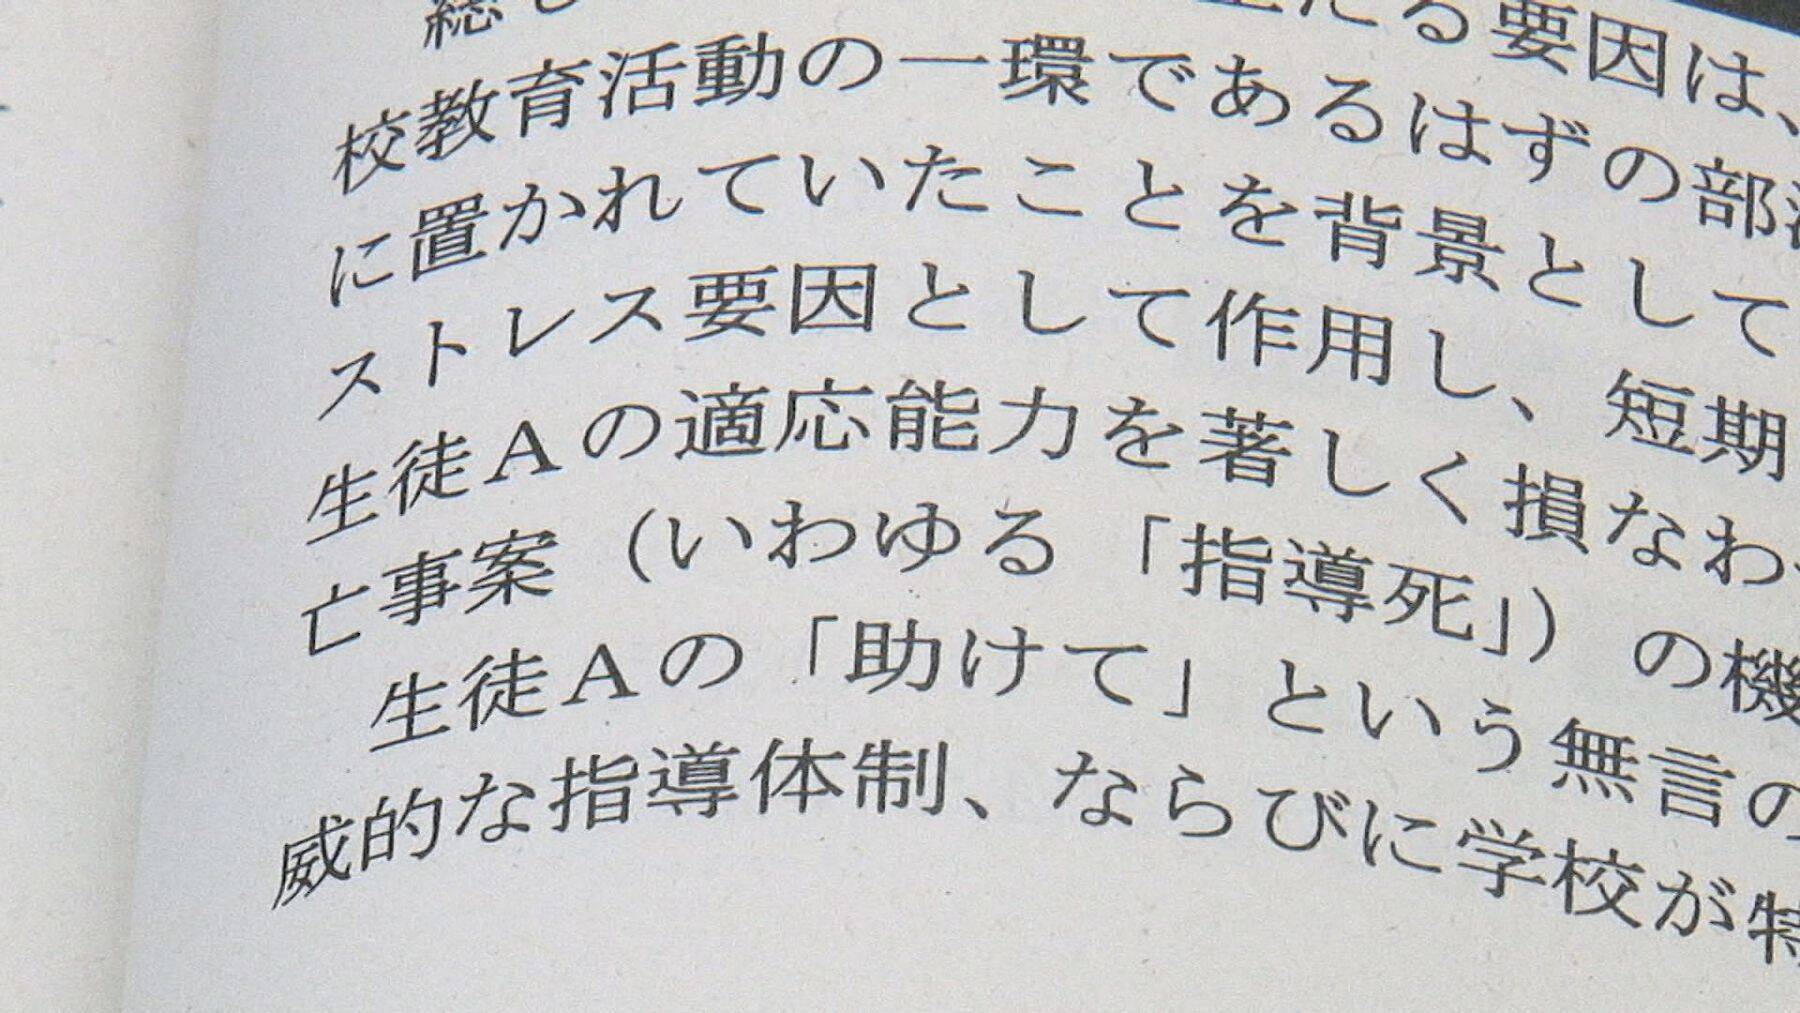 総
たる要因は、
校教育活動の一環であるはずの部活
に置かれていたことを背景として
ストレス要因として作用し、短期
生徒Aの適応能力を著しく損なわ
亡事案（いわゆる「指導死」）の機
生徒Aの「助けて」という無言の
威的な指導体制、ならびに学校が特